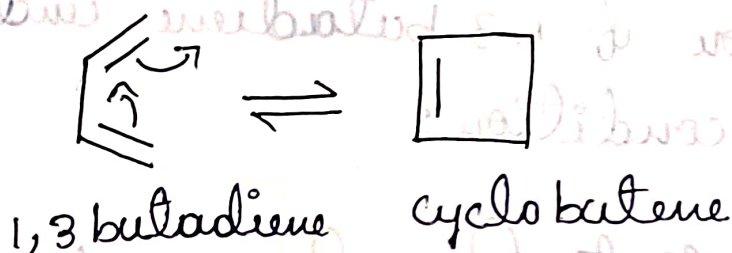 1,3 butadiene
cyclobutene